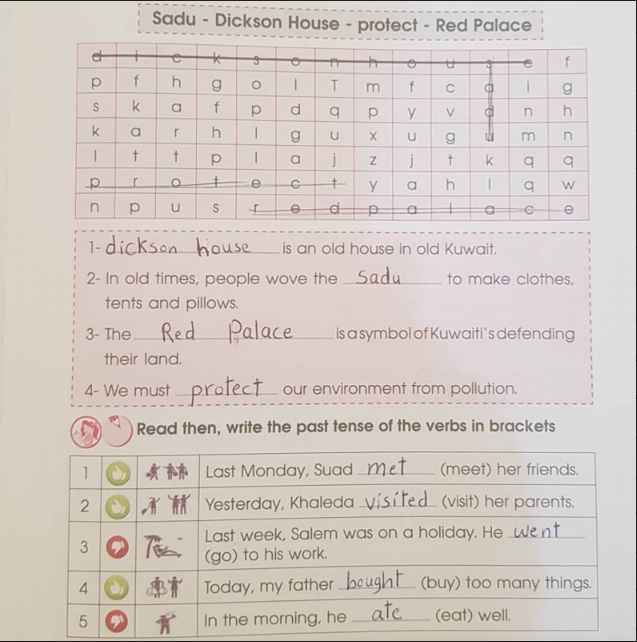 Sadu - Dickson House - protect - Red Palace
d i c k s o n h o u s e f
p f h g o l T m f c a i g
s k a f p d q p y v d n h
k a r h l g u x u g u m n
l t t p l a j z j t k q q
p r o t e c t y a h l q w
n p u s r e d p a l a c e
1- dickson house is an old house in old Kuwait.
2- In old times, people wove the sadu to make clothes,
tents and pillows.
3- The Red Palace is a symbol of Kuwaiti's defending
their land.
4- We must protect our environment from pollution.
Read then, write the past tense of the verbs in brackets
1 Last Monday, Suad met (meet) her friends.
2 Yesterday, Khaleda visited (visit) her parents.
3 Last week, Salem was on a holiday. He went
(go) to his work.
4 Today, my father bought (buy) too many things.
5 In the morning, he ate (eat) well.